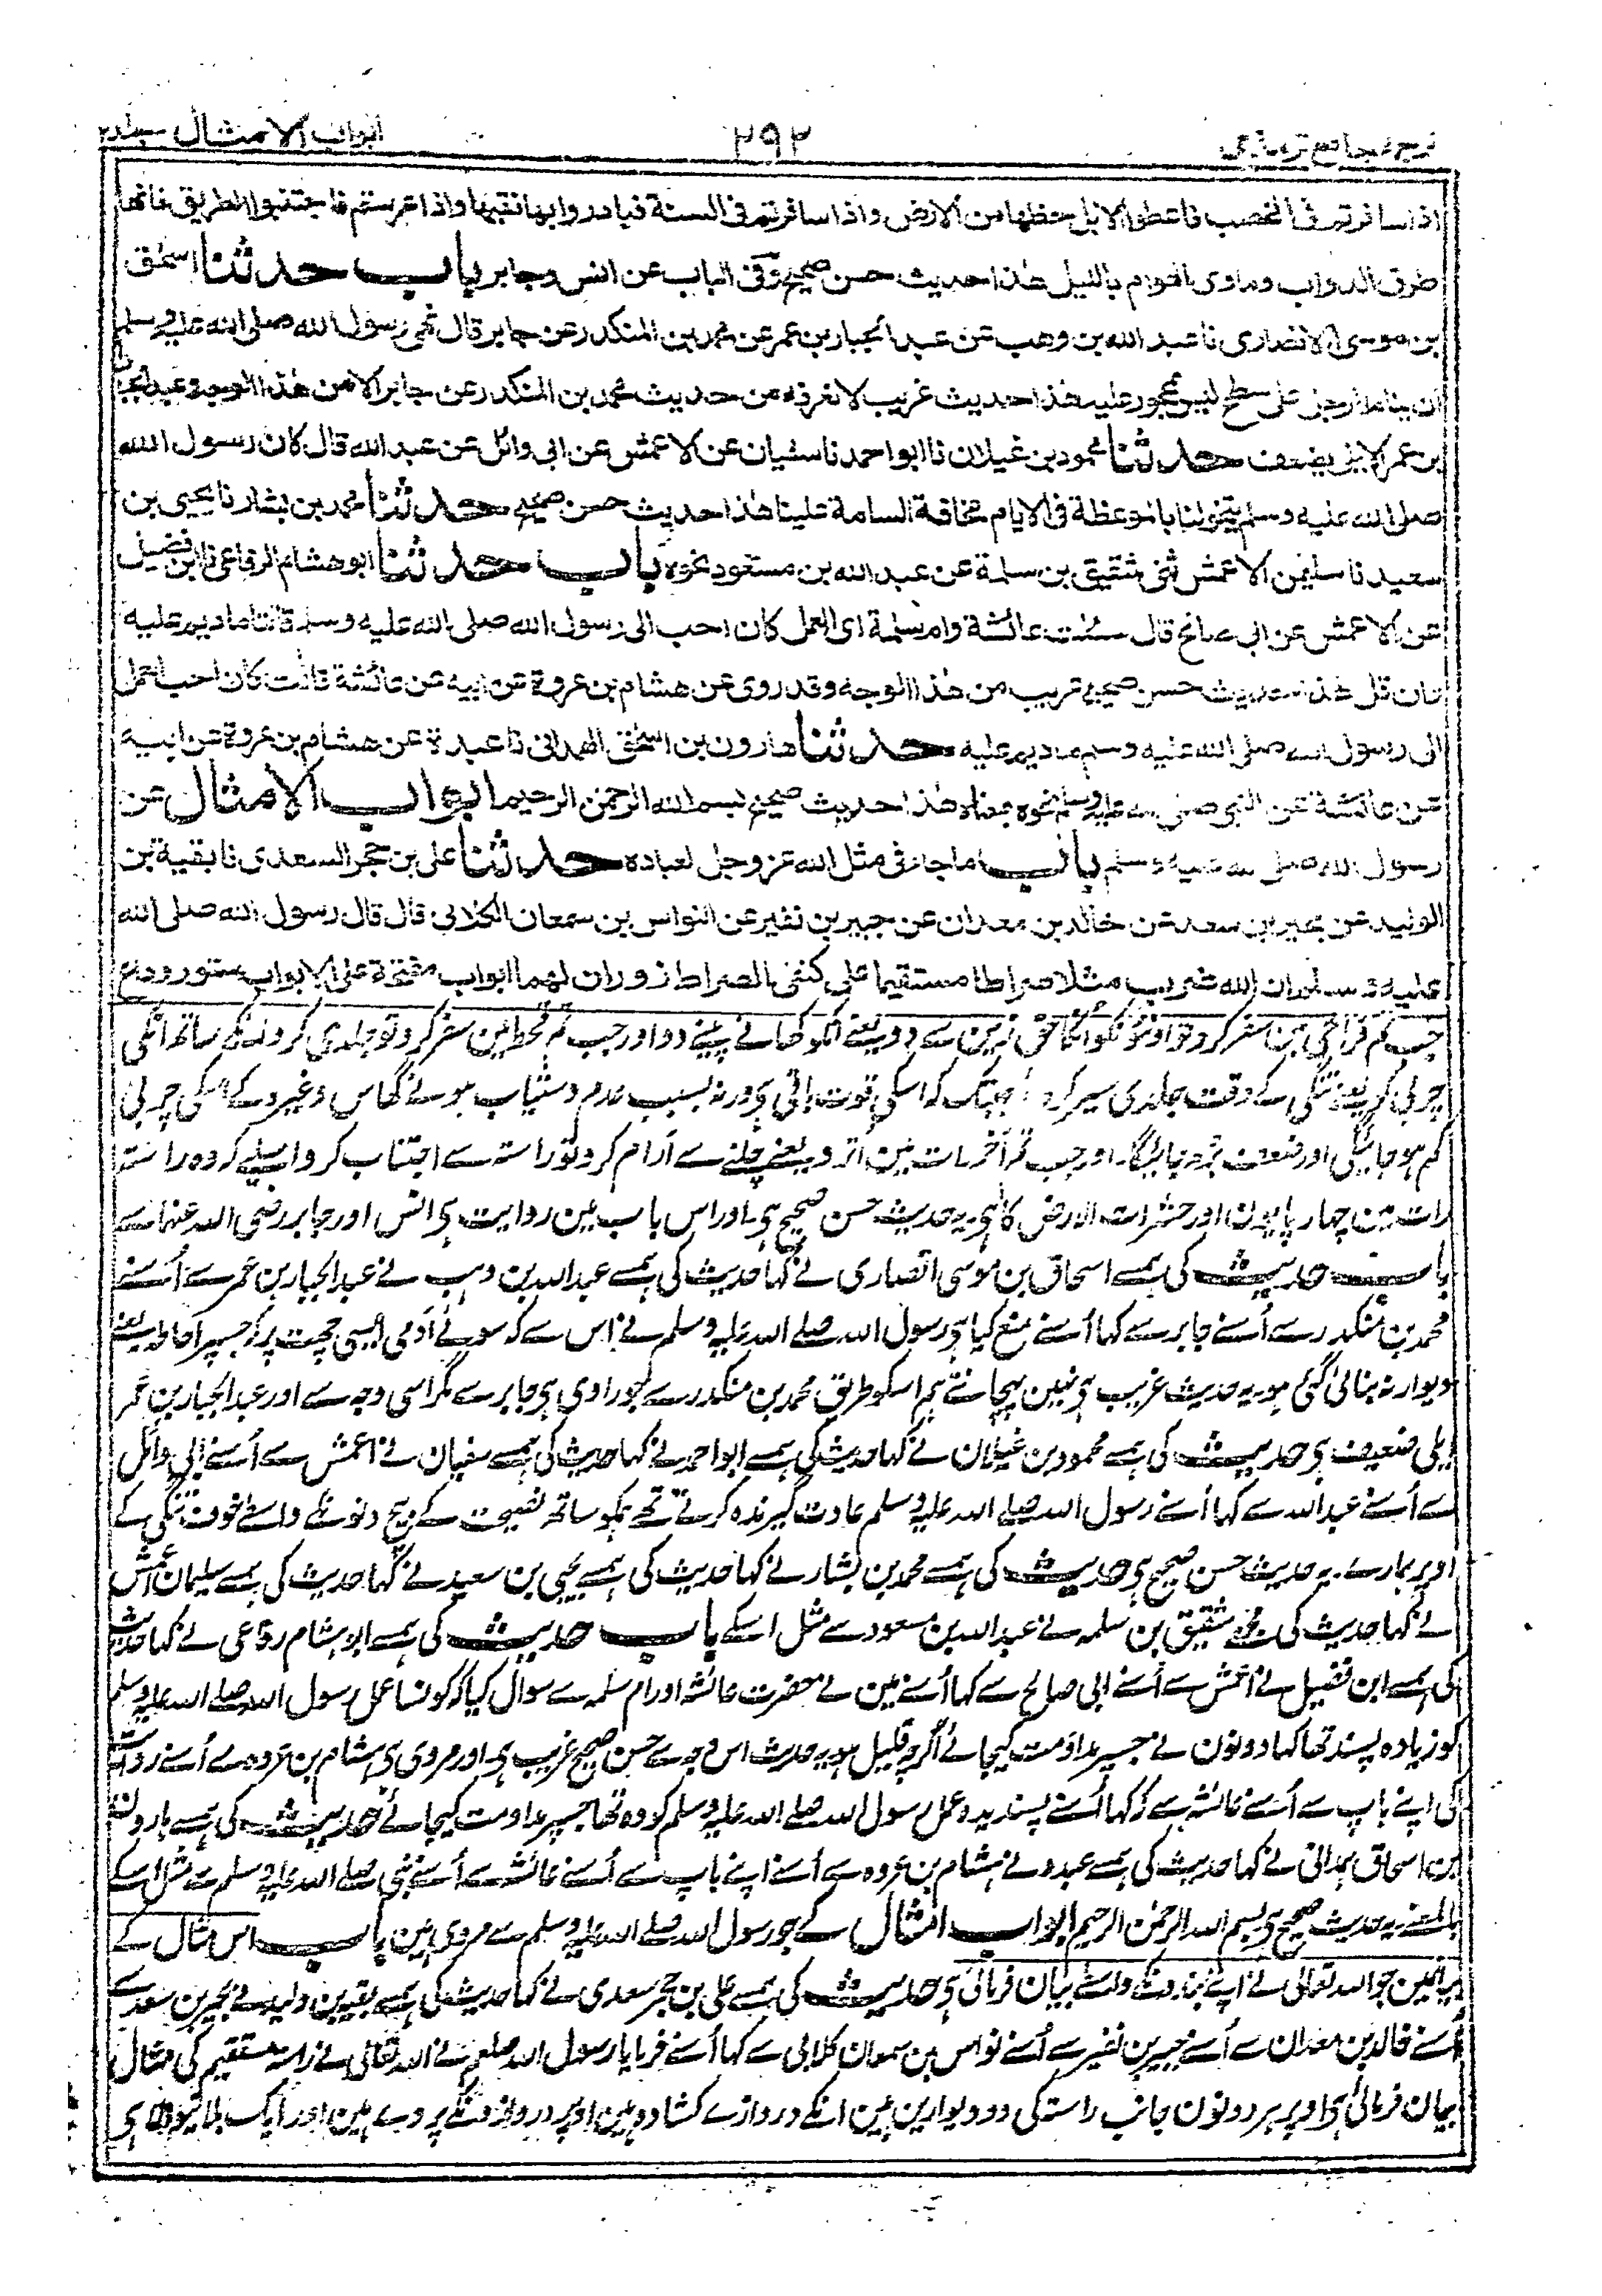 ترجمۂ جامع ترمذی
۲۹۲
ابواب الامثال جلد۲
اذا سافرتم فی الخصب فاعطوا الابل حظها من الارض واذا سافرتم فی السنة فبادروا بها نقیها واذا عرستم فاجتنبوا الطریق فانها
طرق الدواب وماوی الهوام باللیل هذا حدیث حسن صحیح وفی الباب عن انس وجابر باب حدثنا اسحٰق
بن موسی الانصاری نا عبد الله بن وهب عن عبد الجبار بن عمر عن محمد بن المنکدر عن جابر قال نهی رسول الله صلی الله علیه وسلم
ان ینام الرجل علی سطح لیس بمحجور علیه هذا حدیث غریب لا نعرفه من حدیث محمد بن المنکدر عن جابر الا من هذا الوجه وعبد الجبار
بن عمر الایلی یضعف حدثنا محمود بن غیلان نا ابو احمد نا سفیان عن الاعمش عن ابی وائل عن عبد الله قال کان رسول الله
صلی الله علیه وسلم یتخولنا بالموعظة فی الایام مخافة السامة علینا هذا حدیث حسن صحیح حدثنا محمد بن بشار نا یحیی بن
سعید نا سلیمٰن الاعمش ثنی شقیق بن سلمة عن عبد الله بن مسعود نحوه باب حدثنا ابو هشام الرفاعی نا ابن فضیل
عن الاعمش عن ابی صالح قال سئلت عائشة وام سلمة ای العمل کان احب الی رسول الله صلی الله علیه وسلم قالتا ما دیم علیه
وان قل هذا حدیث حسن صحیح غریب من هذا الوجه وقد روی عن هشام بن عروة عن ابیه عن عائشة قالت کان احب العمل
الی رسول الله صلی الله علیه وسلم ما دیم علیه حدثنا هارون بن اسحٰق الهمدانی نا عبدة عن هشام بن عروة عن ابیه
عن عائشة عن النبی صلی الله علیه وسلم نحوه بمعناه هذا حدیث صحیح بسم الله الرحمٰن الرحیم ابواب الامثال عن
رسول الله صلی الله علیه وسلم باب ما جاء فی مثل الله عز وجل لعباده حدثنا علی بن حجر السعدی نا بقیة بن
الولید عن بحیر بن سعد عن خالد بن معدان عن جبیر بن نفیر عن النواس بن سمعان الکلابی قال قال رسول الله صلی الله
علیه وسلم ان الله ضرب مثلا صراطا مستقیما علی کنفی الصراط زوران لهما ابواب مفتحة علی الابواب ستور وداع
جب تم فراخی مین سفر کرو تو اونٹونکو انکا حق زمین سے دو یعنے انکو کھانے پینے دو اور جب تم قحط مین سفر کرو تو جلدی کرو انکے ساتھ انکی
چربی کو یعنے تنگی کے وقت جلدی سیر کرو جبتک کہ اسکی قوت باقی ہو ورنہ بسبب عدم دستیاب ہونے گھاس وغیرہ کے اسکی چربی
کم ہو جائیگی اور ضعف بڑھ جائیگا۔ اور جب تم آخر رات مین اترو یعنے چلنے سے آرام کرو تو راستہ سے اجتناب کرو اسلیے کہ وہ راستہ
رات مین چهار پایون اور حشرات الارض کا ہی۔ یہ حدیث حسن صحیح ہی۔ اور اس باب مین روایت ہی انس اور جابر رضی اللہ عنہما سے
باب حدیث کی ہمسے اسحاق بن موسی انصاری نے کہا حدیث کی ہمسے عبد اللہ بن وہب نے عبد الجبار بن عمر سے اُسنے
محمد بن منکدر سے اُسنے جابر سے کہا اُسنے منع کیا ہی رسول اللہ صلے اللہ علیہ وسلم نے اس سے کہ سوئے آدمی ایسی چھت پر کہ جسپر احاطہ یعنے
دیوار نہ بنائی گئی ہو۔ یہ حدیث غریب ہی نہین پہچانتے ہم اسکو طریق محمد بن منکدر سے جو راوی ہی جابر سے مگر اسی وجہ سے اور عبد الجبار بن عمر
ایلی ضعیف ہی حدیث کی ہمسے محمود بن غیلان نے کہا حدیث کی ہمسے ابو احمد نے کہا حدیث کی ہمسے سفیان نے اعمش سے اُسنے ابی وائل
سے اُسنے عبد اللہ سے کہا اُسنے رسول اللہ صلے اللہ علیہ وسلم عادت گیرندہ کرتے تھے ہمکو ساتھ نصیحت کے بیچ دنونکے واسطے خوف تنگی کے
اوپر ہمارے۔ یہ حدیث حسن صحیح ہی حدیث کی ہمسے محمد بن بشار نے کہا حدیث کی ہمسے یحیی بن سعید نے کہا حدیث کی ہمسے سلیمان اعمش
نے کہا حدیث کی مجھسے شقیق بن سلمہ نے عبد اللہ بن مسعود سے مثل اسکے باب حدیث کی ہمسے ابو ہشام رفاعی نے کہا حدیث
کی ہمسے ابن فضیل نے اعمش سے اُسنے ابی صالح سے کہا اُسنے مین نے حضرت عائشہ اور ام سلمہ سے سوال کیا کہ کونسا عمل رسول اللہ صلے اللہ علیہ وسلم
کو زیادہ پسند تھا کہا دونون نے جسپر مداومت کیجائے اگرچہ قلیل ہو۔ یہ حدیث اس وجہ سے حسن صحیح غریب ہی۔ اور مروی ہی ہشام بن عروہ سے اُسنے روایت
کی اپنے باپ سے اُسنے عائشہ سے کہ کہا اُسنے پسندیدہ عمل رسول اللہ صلے اللہ علیہ وسلم کو وہ تھا جسپر مداومت کیجائے حدیث کی ہمسے ہارون
بن اسحاق ہمدانی نے کہا حدیث کی ہمسے عبدہ نے ہشام بن عروہ سے اُسنے اپنے باپ سے اُسنے عائشہ سے اُسنے نبی صلے اللہ علیہ وسلم سے مثل اسکے
بالمعنے۔ یہ حدیث صحیح ہی بسم اللہ الرحمٰن الرحیم ابواب امثال کے جو رسول اللہ صلے اللہ علیہ وسلم سے مروی ہین باب اس مثال کے
بیانمین جو اللہ تعالی نے اپنے بندونکے واسطے بیان فرمائی ہی حدیث کی ہمسے علی بن حجر سعدی نے کہا حدیث کی ہمسے بقیہ بن ولید نے بحیر بن سعد سے
اُسنے خالد بن معدان سے اُسنے جبیر بن نفیر سے اُسنے نواس بن سمعان کلابی سے کہا اُسنے فرمایا رسول اللہ صلعم نے اللہ تعالی نے راستہ مستقیم کی مثال
بیان فرمائی ہی اوپر ہر دونون جانب راستہ کی دو دیوارین ہین انکے دروازے کشادہ ہین اوپر دروازونکے پردے ہین اور ایک بلانیوالا ہی